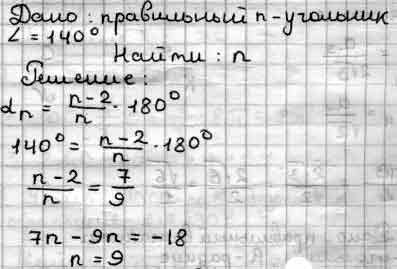 Дано: правильный n-угольник
∠ = 140°
Найти: n
Решение:
αn = (n-2)/n · 180°
140° = (n-2)/n · 180°
(n-2)/n = 7/9
7n - 9n = -18
n = 9